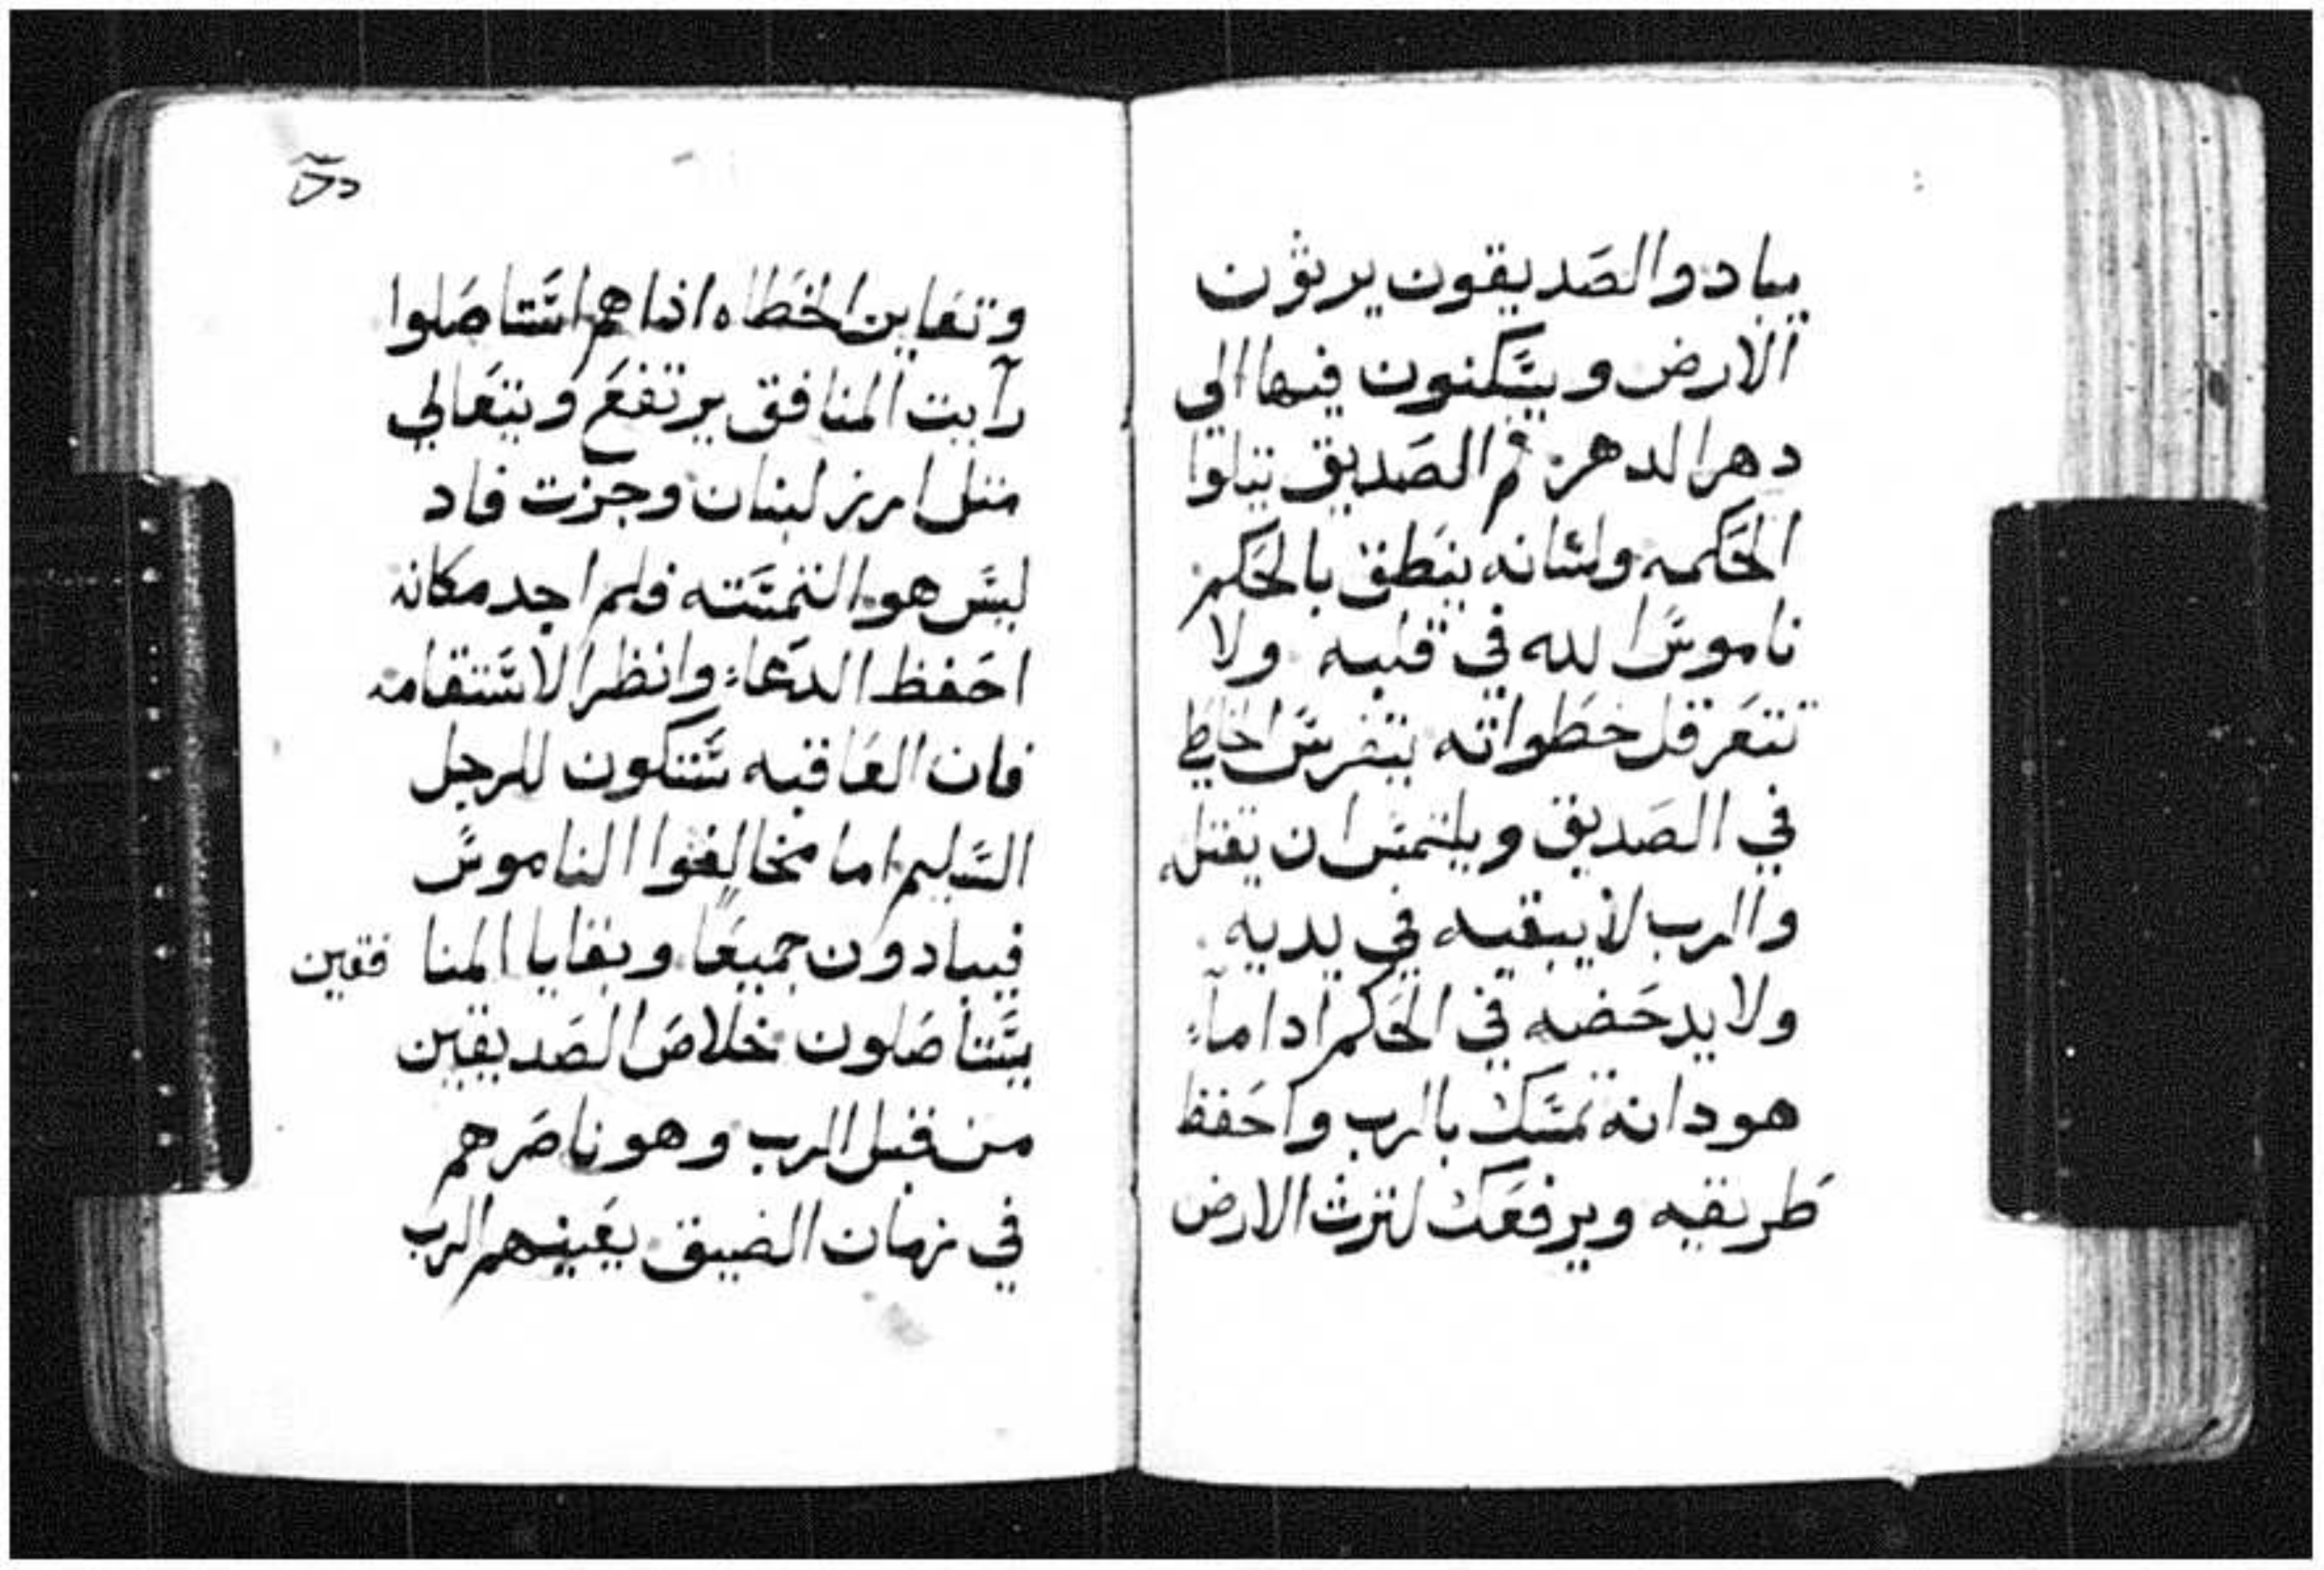 يبادو الصديقون يرثون
الارض ويسكنون فيها الى
دهر الدهر فم الصديق يتلوا
الحكمه ولسانه ينطق بالحكم
ناموس الله في قلبه ولا
تتعرقل خطواته يتفرس الخاطي
في الصديق ويلتمس ان يقتله
والرب لا يبقيه في يديه
ولا يدحضه في الحكم اداما
هودانه تمسك بالرب واحفظ
طريقيه ويرفعك لترث الارض
وتعاين الخطاه اذا هم استاصلوا
رآيت المنافق يرتفع ويتعالي
متل ارز لبنان وجزت فاد
ليس هو التمسته فلم اجد مكانه
احفظ الدعاء وانظر الاستقامه
فان العاقبه ستكون للرجل
السليم اما مخالفوا الناموس
فيبادون جميعا وبقايا المنا فقين
يستأصلون خلاص الصديقين
من قبل الرب وهو ناصرهم
في زمان الضيق يعينهم الرب